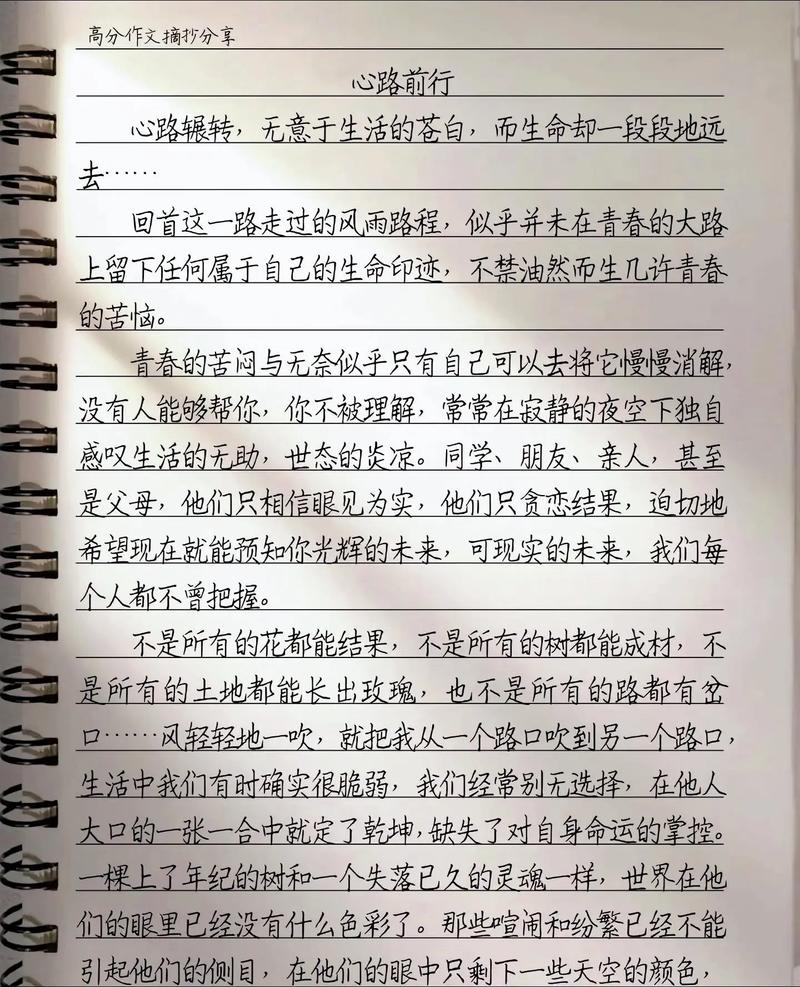 高分作文摘抄分享
心路前行
心路辗转，无意于生活的苍白，而生命却一段段地远
去……
回首这一路走过的风雨路程，似乎并未在青春的大路
上留下任何属于自己的生命印迹，不禁油然而生几许青春
的苦恼。
青春的苦闷与无奈似乎只有自己可以去将它慢慢消解，
没有人能够帮你，你不被理解，常常在寂静的夜空下独自
感叹生活的无助，世态的炎凉。同学、朋友、亲人，甚至
是父母，他们只相信眼见为实，他们只贪恋结果，迫切地
希望现在就能预知你光辉的未来，可现实的未来，我们每
个人都不曾把握。
不是所有的花都能结果，不是所有的树都能成材，不
是所有的土地都能长出玫瑰，也不是所有的路都有岔
口……风轻轻地一吹，就把我从一个路口吹到另一个路口，
生活中我们有时确实很脆弱，我们经常别无选择，在他人
大口的一张一合中就定了乾坤，缺失了对自身命运的掌控。
一棵上了年纪的树和一个失落已久的灵魂一样，世界在他
们的眼里已经没有什么色彩了。那些喧闹和纷繁已经不能
引起他们的侧目，在他们的眼中只剩下一些天空的颜色，